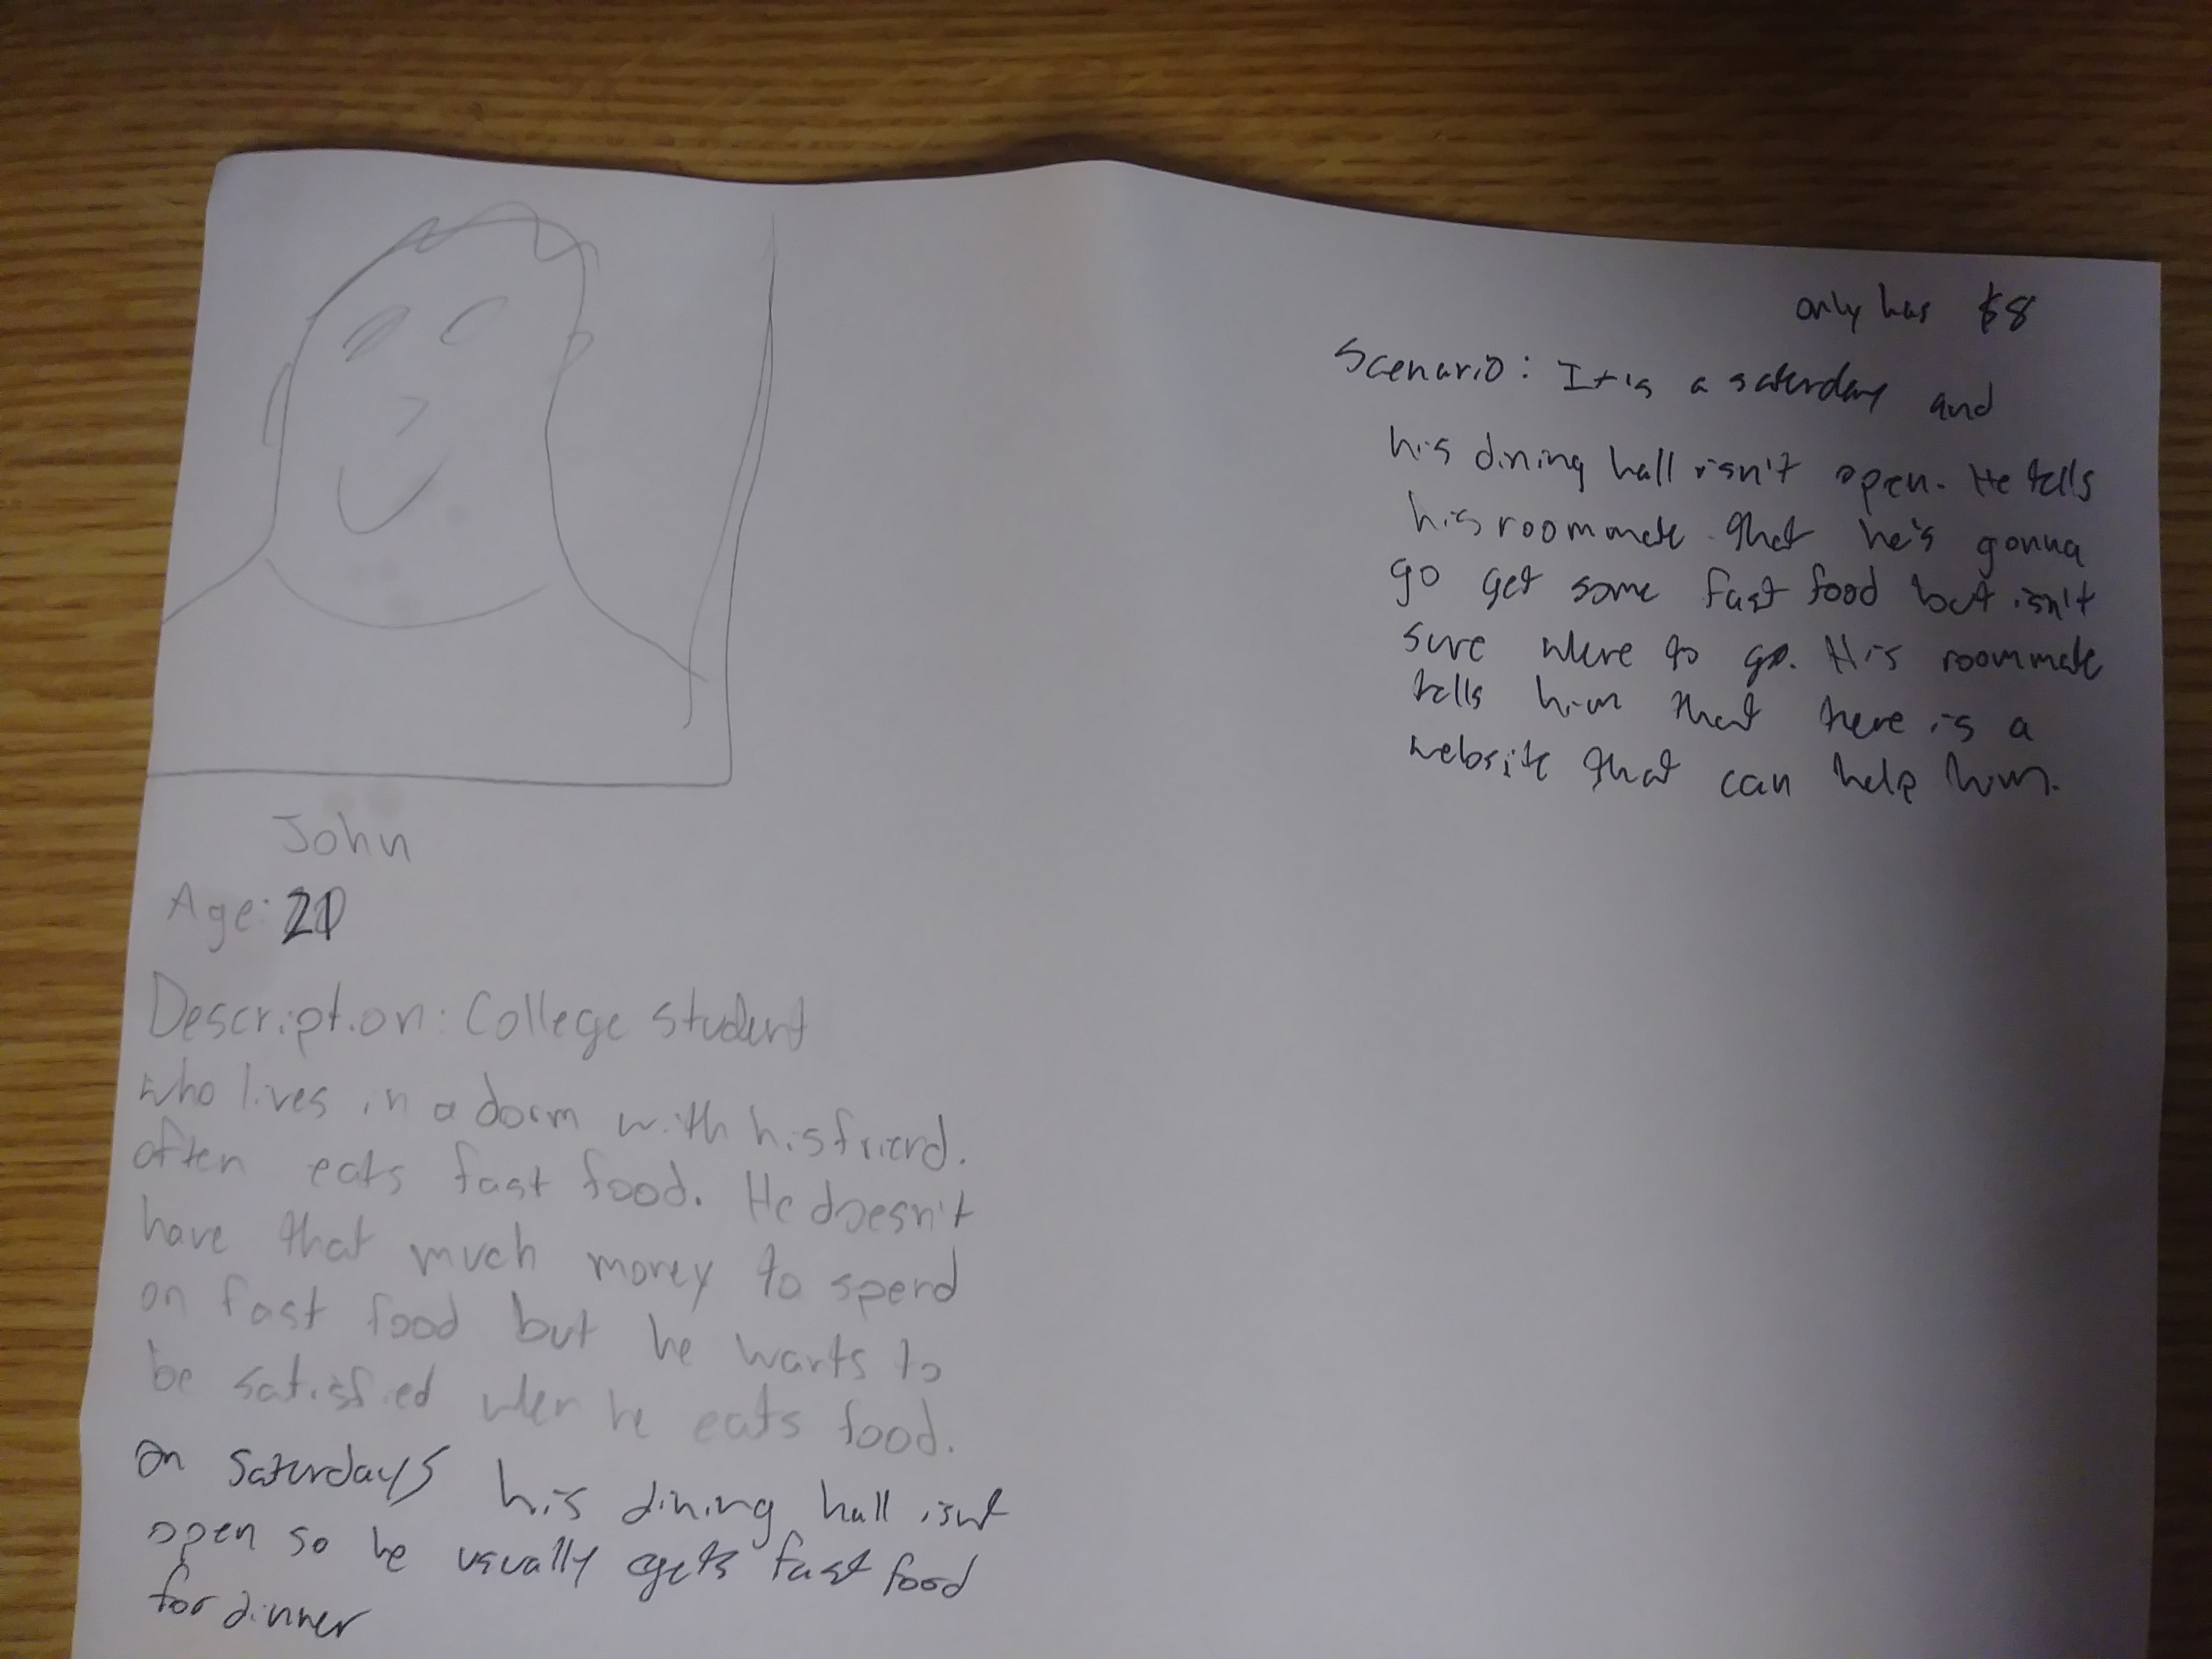 John
Age: 20
Description: College student
who lives in a dorm with his friend.
often eats fast food. He doesn't
have that much money to spend
on fast food but he wants to
be satisfied when he eats food.
on saturdays his dining hall isnt
open so he usually gets fast food
for dinner
only has $8
Scenario: It is a saturday and
his dining hall isn't open. He tells
his roommate that he's gonna
go get some fast food but isn't
sure where to go. His roommate
tells him that there is a
website that can help him.